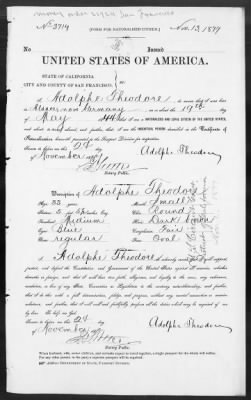 money order 21924 San Francisco
No. 3714
[FORM FOR NATURALIZED CITIZEN.]
Nov. 13, 1879
No
Issued
UNITED STATES OF AMERICA.
STATE OF CALIFORNIA
CITY AND COUNTY OF SAN FRANCISCO,
I, Adolphe Theodore, do swear that I was born
in Germany on or about the 19th day of
May 1844 that I am a NATURALIZED AND LOYAL CITIZEN OF THE UNITED STATES,
and about to travel abroad; and further, that I am the IDENTICAL PERSON described in the Certificate of
Naturalization
Sworn to before me this
day
of November 1879
Adolphe Theodore
Notary Public.
Description of Adolphe Theodore
Age: 35 years
Mouth: Small
Stature: 5 feet
Chin: Round
Forehead: Medium
Hair: Dark brown
Eyes: Blue
Complexion: Fair
Nose: regular
Face: Oval
I, Adolphe Theodore do solemnly swear that I will support,
protect, and defend the Constitution and Government of the United States against all enemies, whether
domestic or foreign; and that I will bear true faith, allegiance, and loyalty to the same, any ordinance,
resolution, or law of any State, Convention or Legislature to the contrary notwithstanding; and further,
that I do this with a full determination, pledge, and purpose, without any mental reservation or evasion
whatsoever; and further, that I will well and faithfully perform all the duties which may be required of me
by law. So help me God.
Sworn to before me this
day
of November 1879
Adolphe Theodore
Notary Public.
When husband, wife, minor children, and servants expect to travel together, a single passport for the whole will suffice.
For any other person in the party a separate passport will be required.